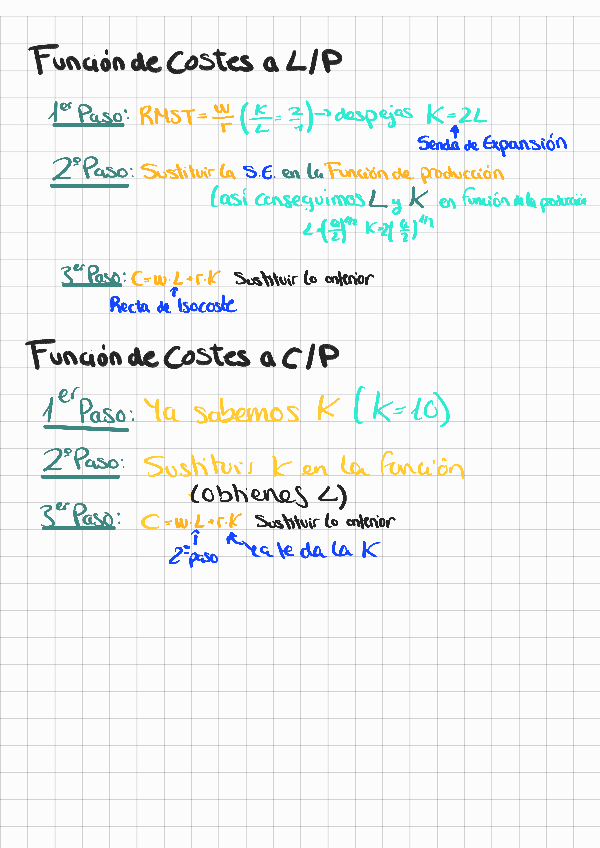 Función de Costes a L/P
1er Paso: RMST = w/r (K/L = 2/1) → despejas K=2L
Senda de Expansión
2º Paso: Sustituir la S.E. en la Función de producción
(así conseguimos L y K en función de la producción
3er Paso: C=w·L+r·K Sustituir lo anterior
Recta de Isocoste
Función de Costes a C/P
1er Paso: Ya sabemos K (K=10)
2º Paso: Sustituir K en la función
(obtienes L)
3er Paso: C=w·L+r·K Sustituir lo anterior
2º paso Ya te da la K